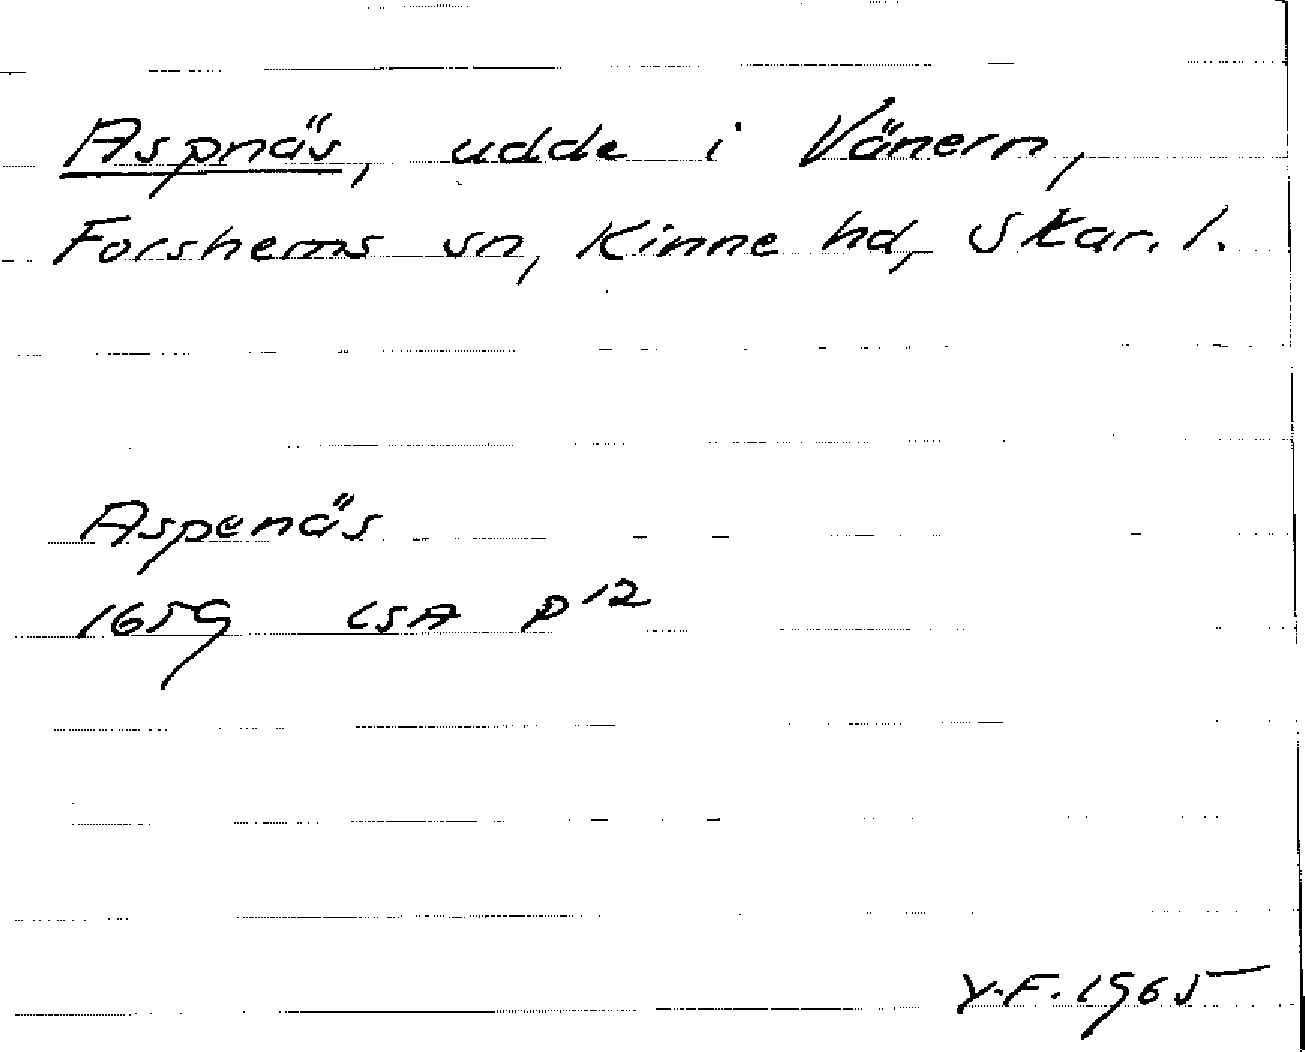 Aspnäs, udde i Vänern,
Forshems sn, Kinne hd, Skar. l.
Aspenäs
1659 LSA P 12
Y.F. 1965